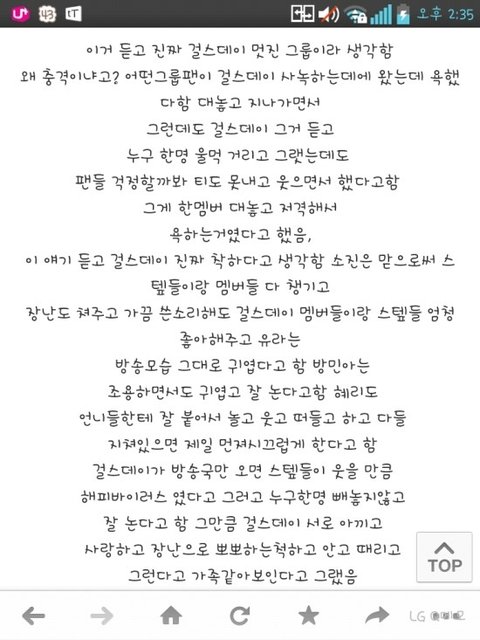 U+ 43 tT 오후 2:35
이거 듣고 진짜 걸스데이 멋진 그룹이라 생각함
왜 충격이냐고? 어떤그룹팬이 걸스데이 사녹하는데에 왔는데 욕했
다함 대놓고 지나가면서
그런데도 걸스데이 그거 듣고
누구 한명 울먹 거리고 그랫는데도
팬들 걱정할까봐 티도 못내고 웃으면서 했다고함
그게 한멤버 대놓고 저격해서
욕하는거였다고 했음,
이 얘기 듣고 걸스데이 진짜 착하다고 생각함 소진은 맏으로써 스
텦들이랑 멤버들 다 챙기고
장난도 쳐주고 가끔 쓴소리해도 걸스데이 멤버들이랑 스텦들 엄청
좋아해주고 유라는
방송모습 그대로 귀엽다고 함 방민아는
조용하면서도 귀엽고 잘 논다고함 혜리도
언니들한테 잘 붙어서 놀고 웃고 떠들고 하고 다들
지쳐있으면 제일 먼져시끄럽게 한다고 함
걸스데이가 방송국만 오면 스텦들이 웃을 만큼
해피바이러스 였다고 그러고 누구한명 빼놓지않고
잘 논다고 함 그만큼 걸스데이 서로 아끼고
사랑하고 장난으로 뽀뽀하는척하고 안고 때리고
그런다고 가족같아보인다고 그랬음
TOP
LG